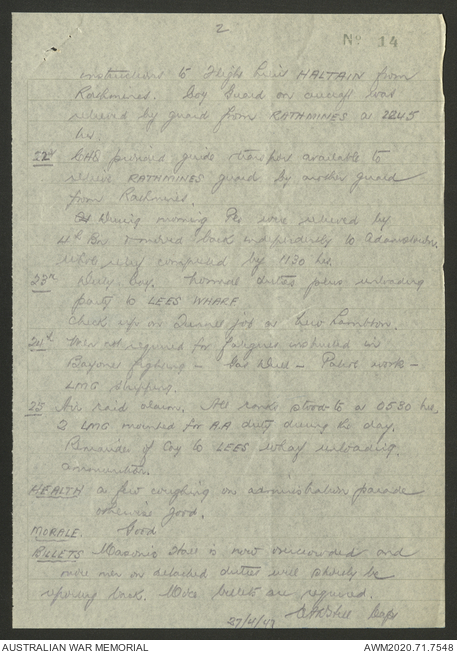 2
No 14
instructions to Flight Lieut HALTAIN from
Rathmines. Coy Guard on aircraft was
relieved by guard from RATHMINES at 2245
hrs.
22nd CHQ provided guide transport available to
relieve RATHMINES guard by another guard
from Rathmines.
During morning Pls were relieved by
4th Bn moved back independently to Adamstown
completed by 1130 hrs.
23rd Duty Coy. Normal duties plus unloading
party to LEES WHARF
Check up on Tunnel job at New Lambton.
24th Men not required for fatigues instructed in
Bayonet fighting - Gas Drill - Patrol work -
LMG stripping.
25 Air raid alarm. All ranks stood-to at 0530 hrs.
2 LMG mounted for AA duty during the day.
Remainder of Coy to LEES wharf unloading
ammunition.
HEALTH a few coughing on administration parade
otherwise good.
MORALE. Good
BILLETS Masonic Hall is now overcrowded and
more men on detached duties will shortly be
reporting back. More billets are required.
27/4/42 Capt
AUSTRALIAN WAR MEMORIAL
AWM2020.71.7548